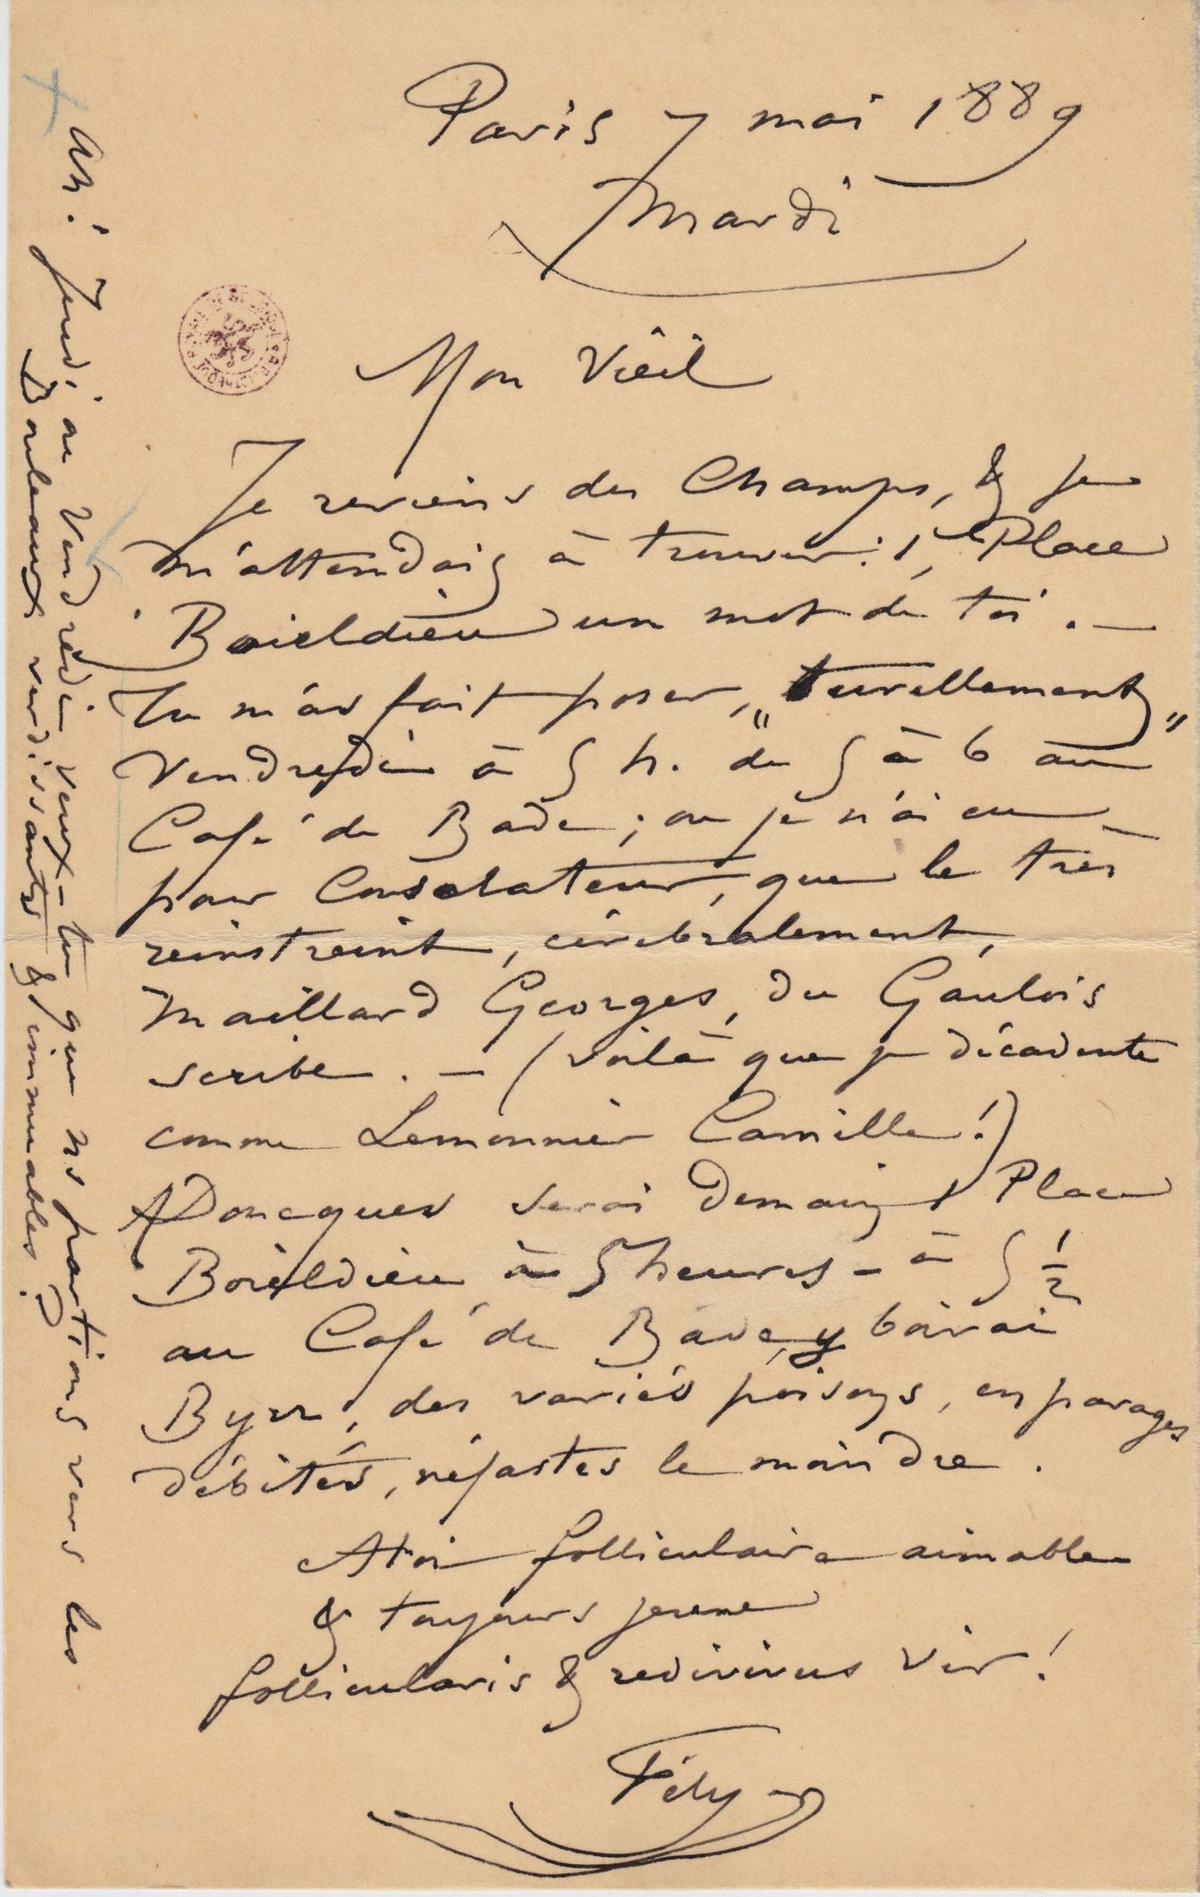 Paris 7 mai 1889
Mardi
Mon Vieil
Je reviens des Champs, & je
m'attendais à trouver : 1, Place
Boieldieu un mot de toi . —
Tu m'as fait poser, "turellement"
Vendredi à 5 h. de 5 à 6 au
Café de Bade ; ou je n'ai eu —
pour Consolateur, que le très
reinstreint, cérébralement,
Maillard Georges, du Gaulois
scribe . — (Voilà que je décadente
comme Lemonnier Camille !)
Adoncques serai demain 1 Place
Boieldieu à 5 heures – à 5 1/2
au Café de Bade, y boirai
Byrr, des variés poisons, en parages
débités, néfastes le moindre .
A toi folliculaire aimable
& toujours jeune
follicularis & redivivus Vir !
Fély
Ah ! Jeudi ou Vendredi veux-tu que ns partions vers les
Bouleaux verdissants & immuables ?